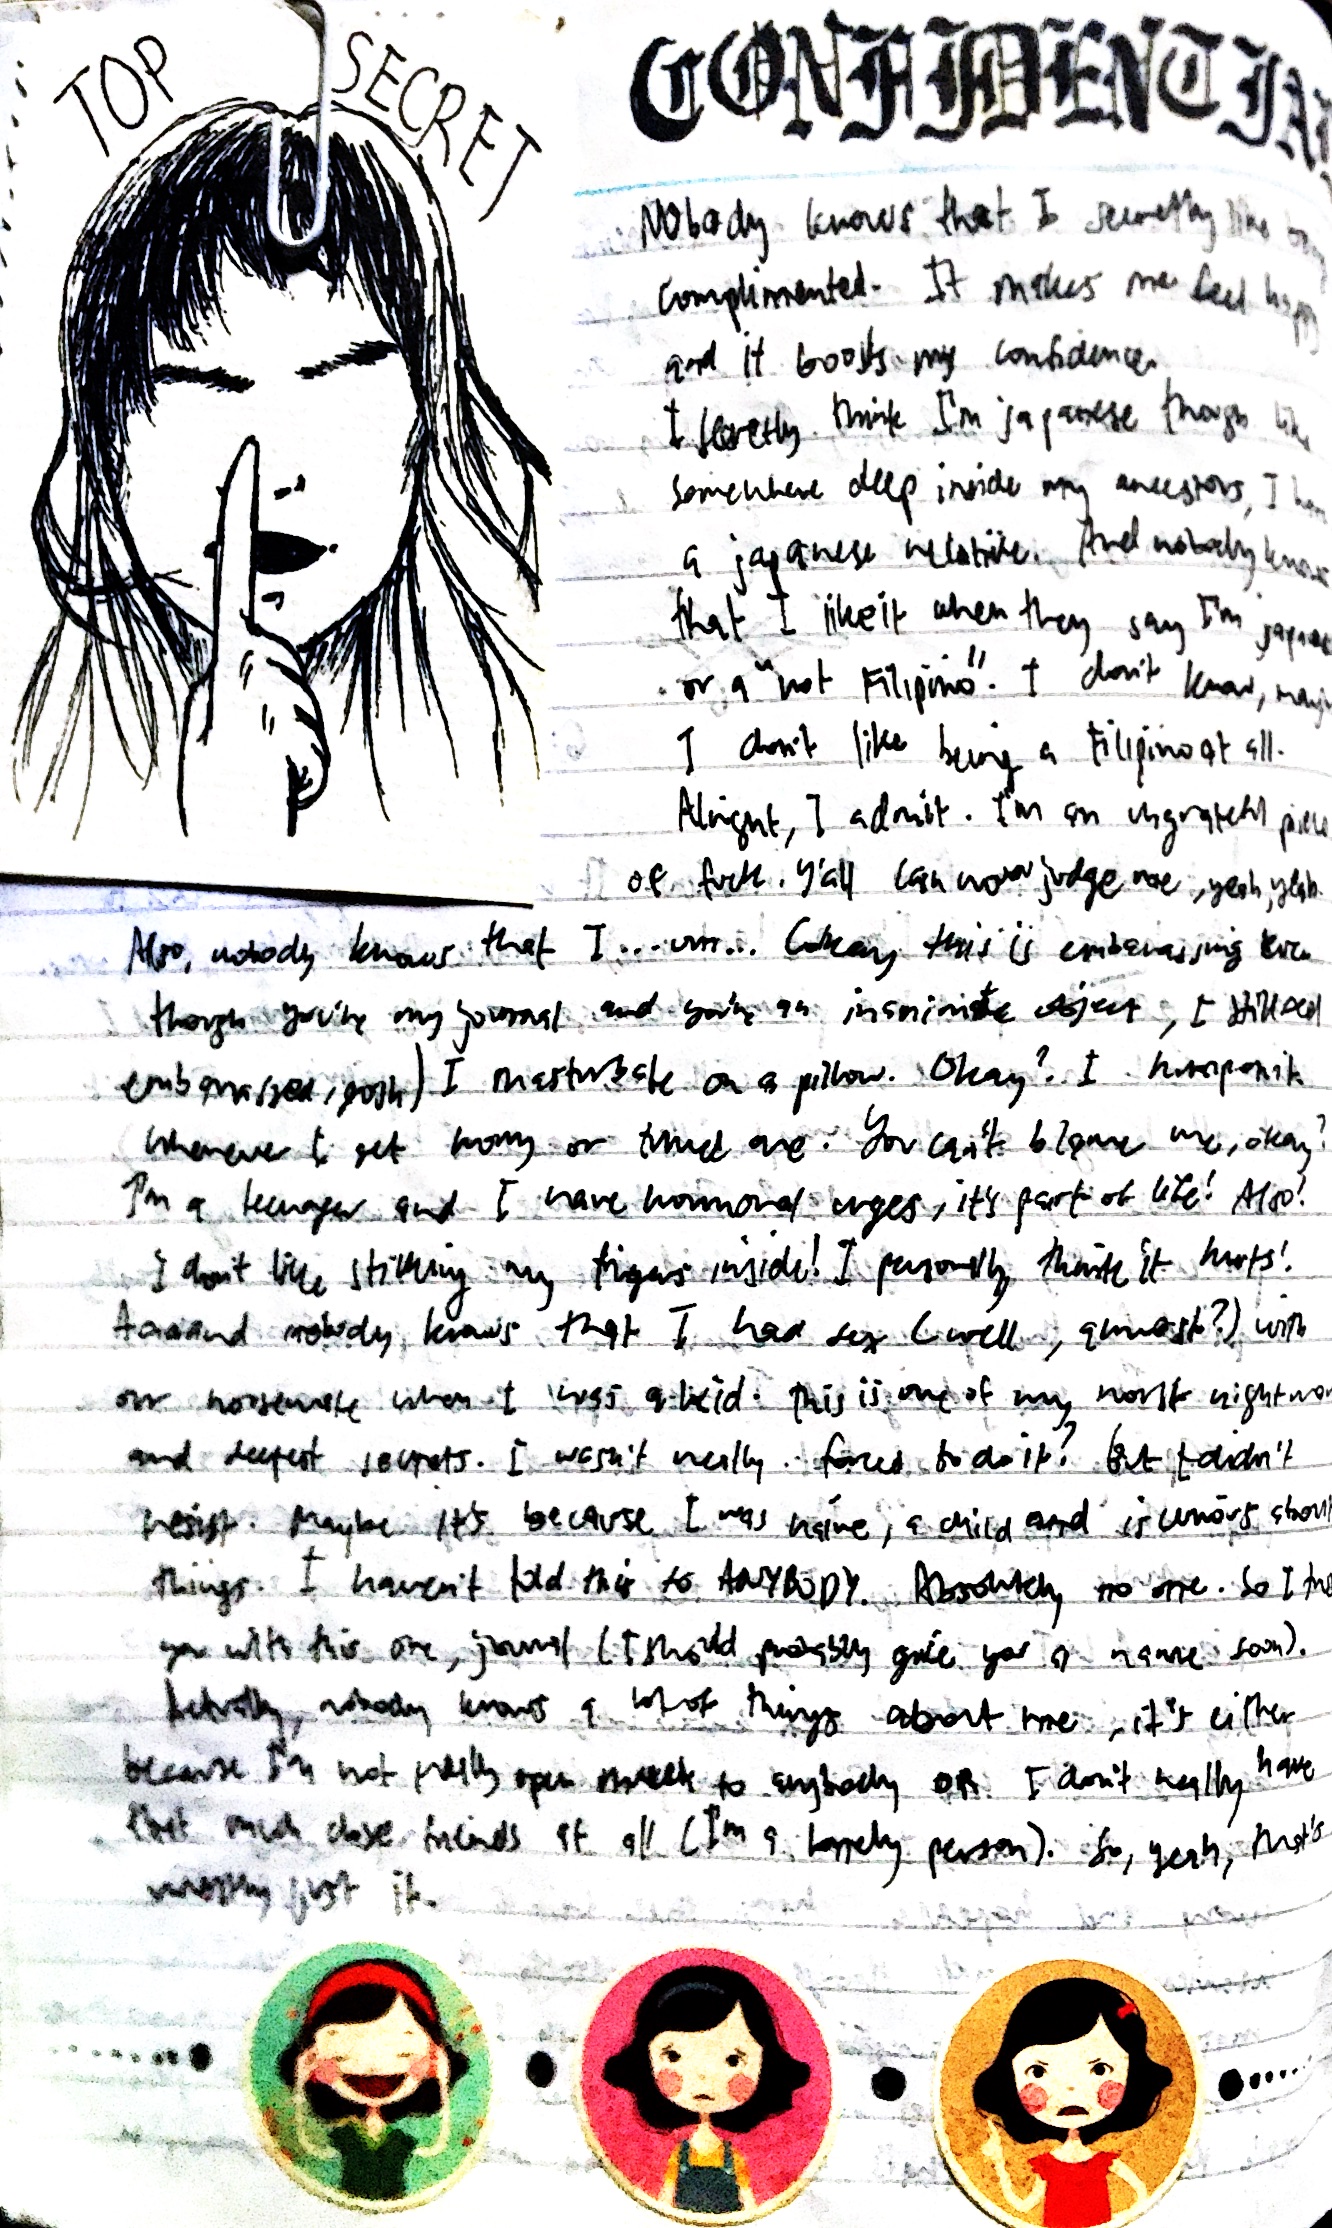 TOP SECRET
CONFIDENTIAL
Nobody knows that I secretly like
complimented. It makes me feel happy
and it boosts my confidence.
I secretly think I'm japanese though like
somewhere deep inside my ancestors, I have
a japanese relative. And nobody knows
that I like it when they say I'm japanese
or a "not Filipino". I don't know, maybe
I don't like being a Filipino at all.
Alright, I admit. I'm an ungrateful piece
of fuck. Y'all can now judge me, yeah, yeah.
Also, nobody knows that I...um... (okay, this is embarassing even
though you're my journal and you're an inanimate object, I still feel
embarrassed, gosh)
Aaaand nobody knows that I had sex (well, almost?) with
our housemate when I was a kid. This is one of my worst
and deepest secrets. I wasn't really forced to do it? But I didn't
resist. Maybe it's because I was naive, a child and is curious about
things. I haven't told this to ANYBODY. Absolutely no one. So I
you with this one, journal (I should probably give you a name soon).
Actually, nobody knows a lot of things about me, it's either
because I'm not really open to anybody OR I don't really have
that much close friends at all (I'm a lonely person). So, yeah, that's
mostly just it.